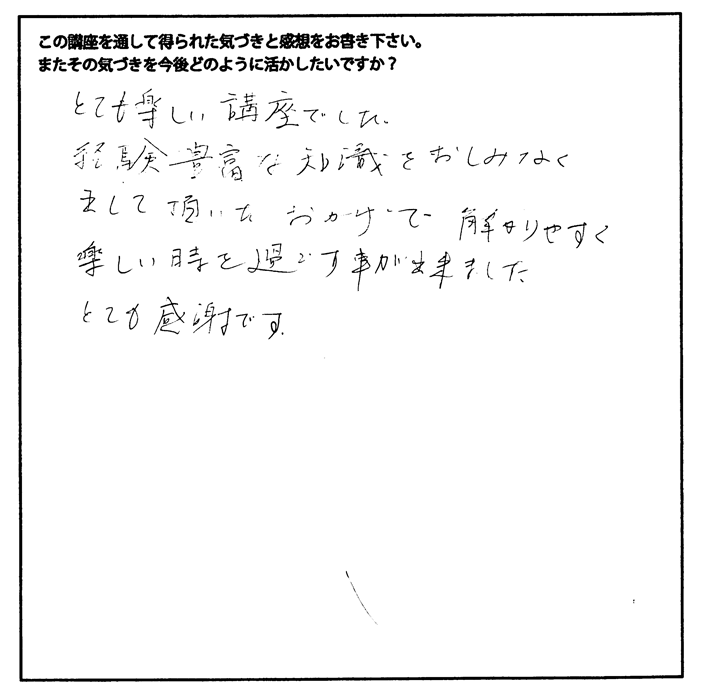 この講座を通して得られた気づきと感想をお書き下さい。
またその気づきを今後どのように活かしたいですか？
とても楽しい講座でした。
経験豊富な知識をおしみなく
して頂いた おかげで 解かりやすく
楽しい時を過ごす事が出来ました
とても感謝です。